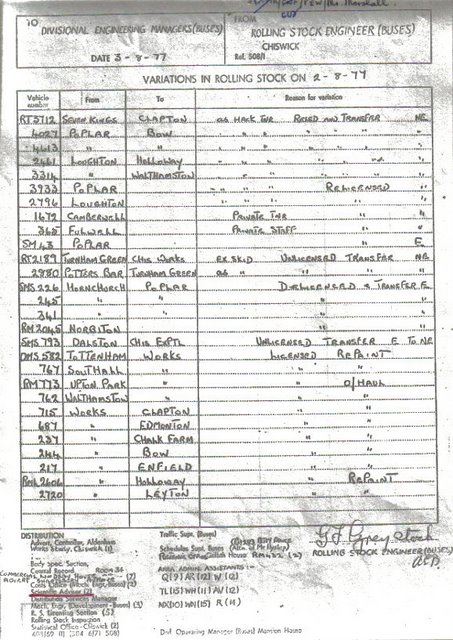 TO
DIVISIONAL ENGINEERING MANAGERS (BUSES)
DATE 3-8-77
FROM
ROLLING STOCK ENGINEER (BUSES)
CHISWICK
Ref. 508/1
VARIATIONS IN ROLLING STOCK ON 2-8-77
Vehicle number From To Reason for variation
RT3712 SEVEN KINGS CLAPTON as HACK TNR TRANSFER NE
4027 POPLAR BOW " " " "
4613 " " " " " "
2461 LOUGHTON HOLLOWAY " " " "
3314 " WALTHAMSTON " " " "
3933 POPLAR " " " RELICENSED "
2796 LOUGHTON " " " " "
1672 CAMBERWELL PRIVATE TNR " "
365 FULWELL PRIVATE STAFF " "
SM 43 POPLAR " E
RT2189 TURNHAM GREEN CHIS WORKS EX SKID UNLICENSED TRANSFER NE
2880 POTTERS BAR TURNHAM GREEN as " " " "
SMS 226 HORNCHURCH POPLAR DELICENSED & TRANSFER E
245 " " " " "
341 " " " " "
RM 2045 NORBITON " "
SMS 793 DALSTON CHIS EXPTL UNLICENSED TRANSFER E TO NE
DMS 582 TOTTENHAM WORKS LICENSED REPAINT
767 SOUTHALL " " "
RM 773 UPTON PARK " " O/HAUL
762 WALTHAMSTON " " "
715 WORKS CLAPTON " "
687 " EDMONTON " "
237 " CHALK FARM " "
244 " BOW " "
217 " ENFIELD " "
RML 2606 " HOLLOWAY " REPAINT
2720 " LEYTON " "
G J Greystock
ROLLING STOCK ENGINEER (BUSES)
DISTRIBUTION
Advert. Controller, Aldenham
Works Supdy. Chiswick (1)
Body Spec. Section
Central Record ROOM 34
Costs Office (Mech. Engr. Buses)
Scientific Adviser (2)
Distribution Services Manager
Mech. Engr. (Development - Buses) (3)
R. S. Licensing Section (5)
Rolling Stock Inspection
Statistical Office - Chiswick (2)
Traffic Supt. (Buses)
Schedules Supt. Buses
AREA ADMIN. ASSISTANTS :-
Q(9) AR(12) W(2)
TL(15) WH(11) AV(12)
NX(10) WN(15) R(11)
Dist. Operating Manager (Buses) Mansion House